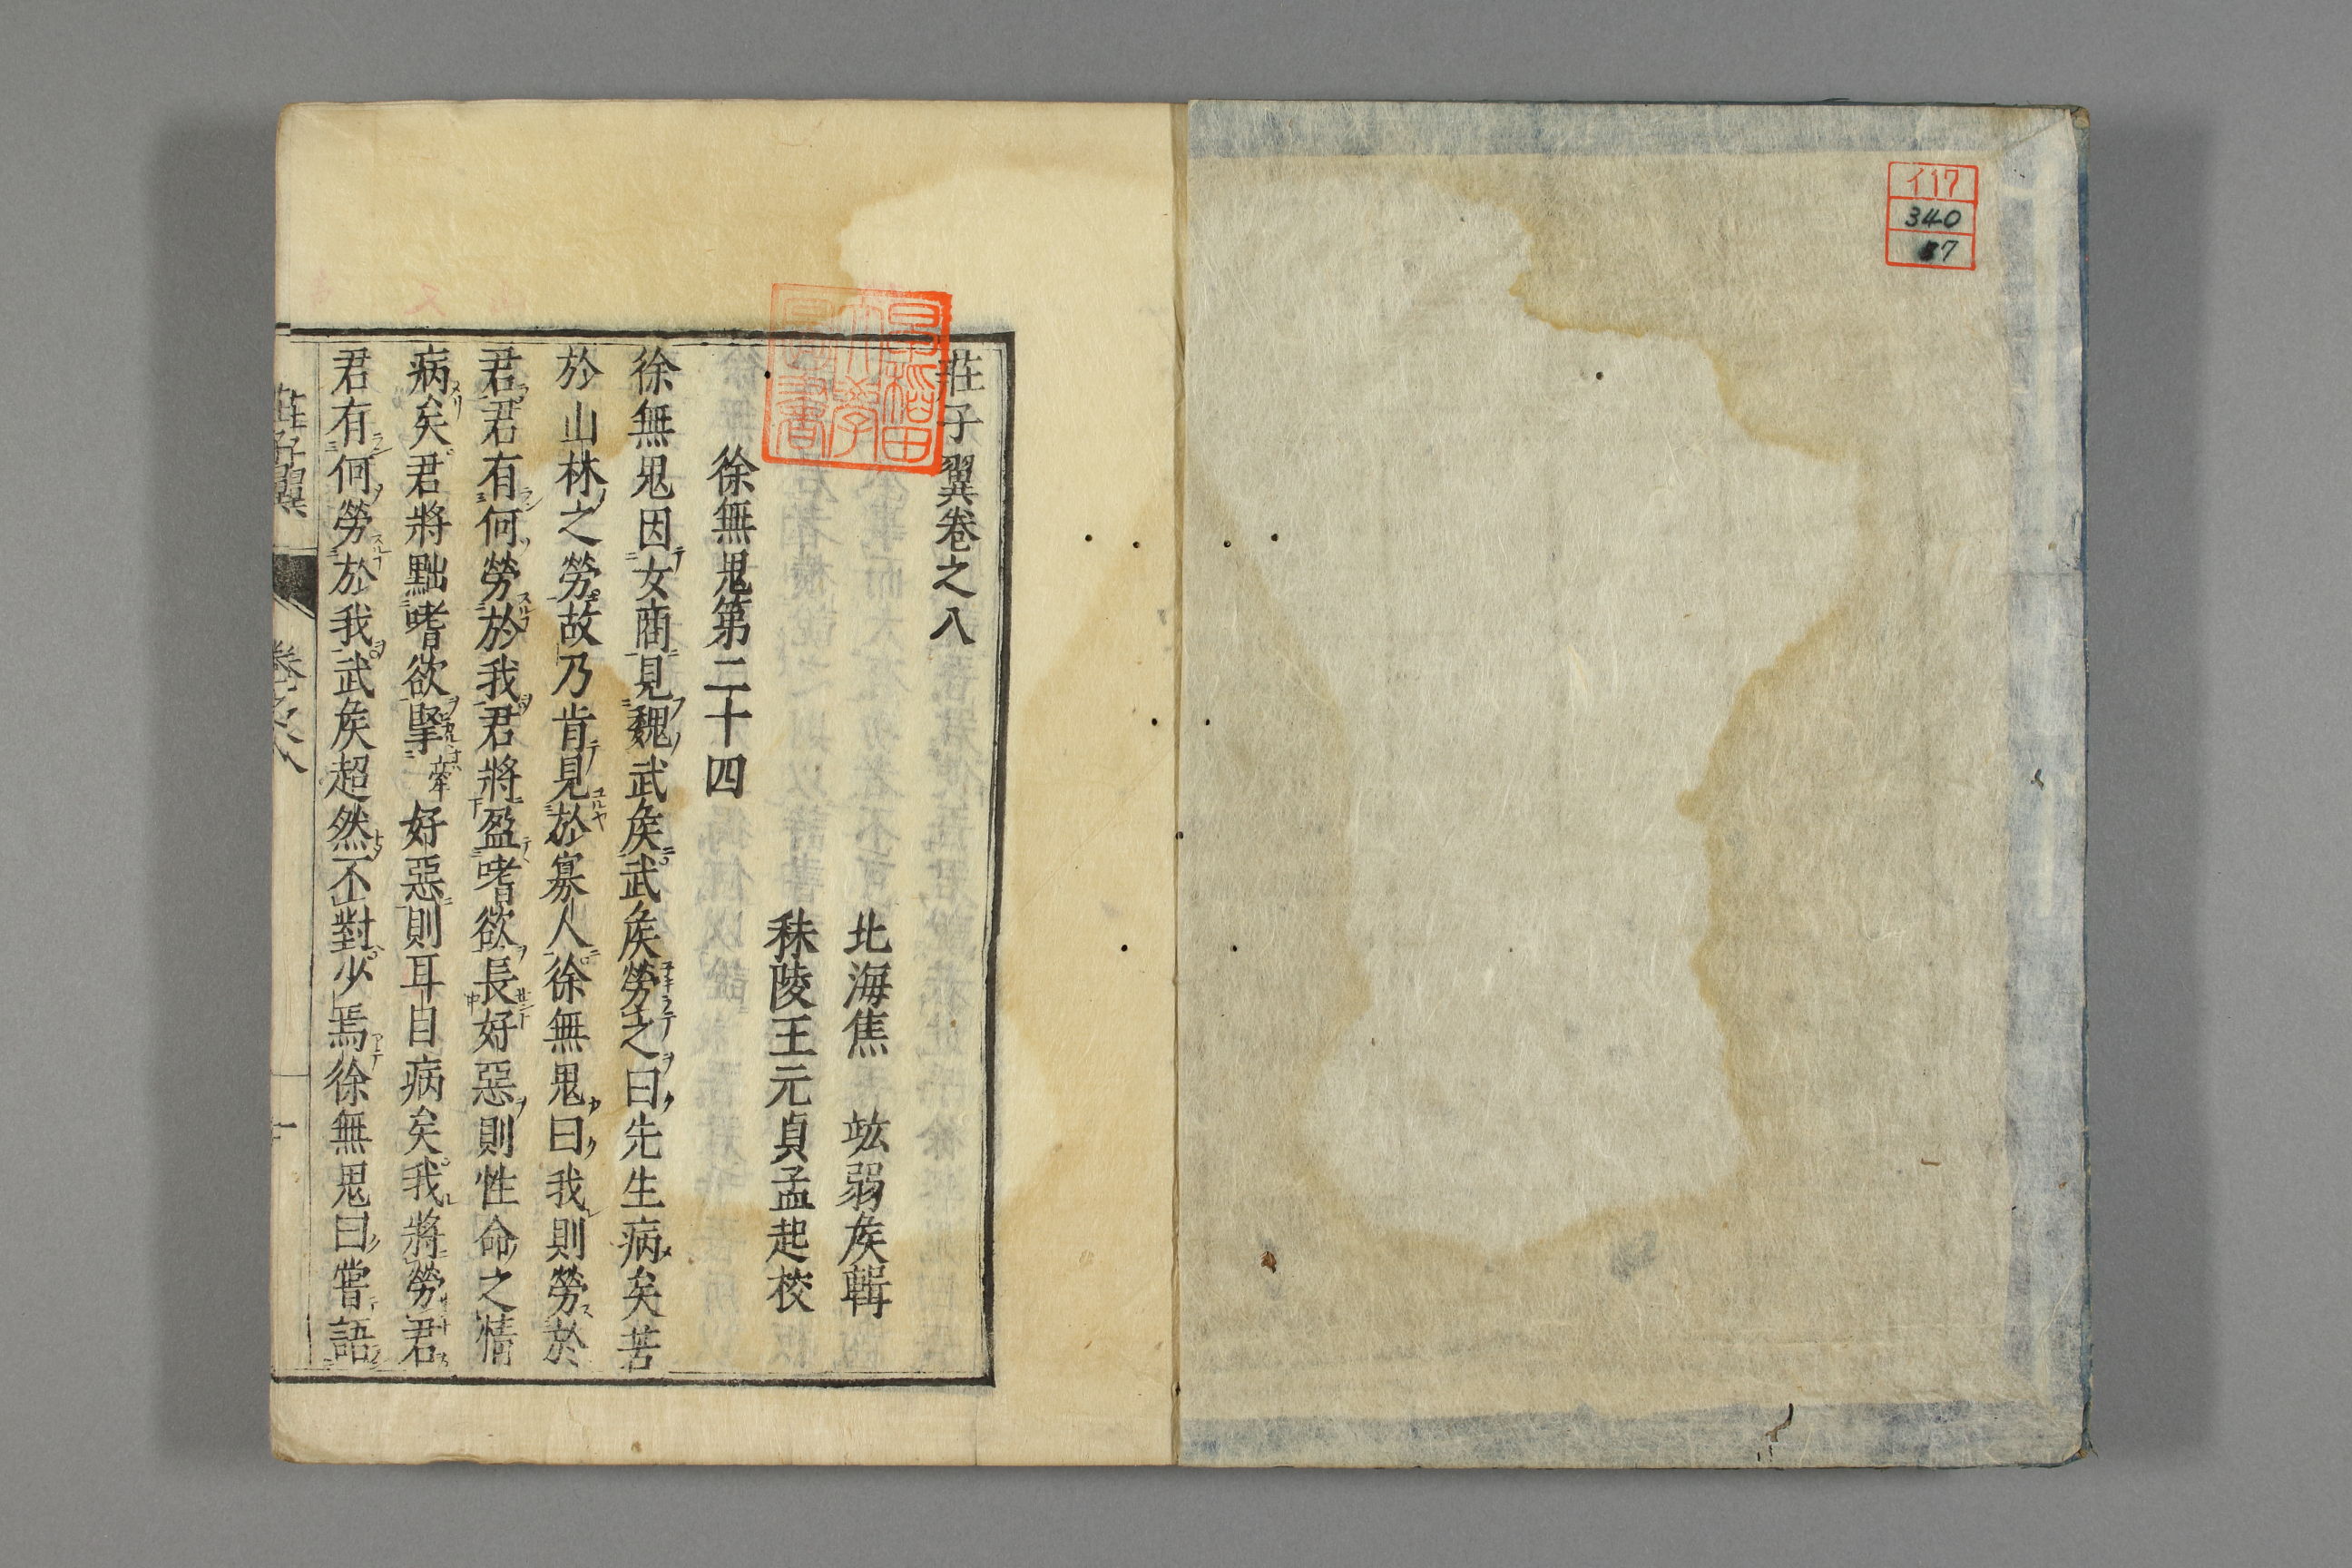 イ17
340
37
莊子翼卷之八
早稲田
大學
圖書
北海焦　竑弱矦輯
秣陵王元貞孟起校
徐無鬼第二十四
徐無鬼因女商見魏武矦武矦勞之曰先生病矣苦
於山林之勞故乃肯見於寡人徐無鬼曰我則勞於
君君有何勞於我君將盈嗜欲長好惡則性命之情
病矣君將黜嗜欲掔音牽好惡則耳目病矣我將勞君
君有何勞於我武矦超然不對少焉徐無鬼曰嘗語
莊子翼　卷之八　一